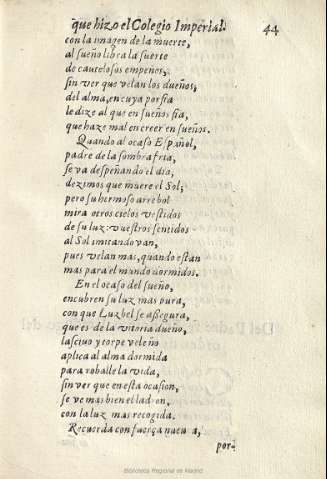 que hizo el Colegio Imperial. 44
con la imagen de la muerte,
al sueño libra la suerte
de cautelosos empeños,
sin ver que velan los dueños,
del alma, en cuya porfia
le dize al que en sueños fia,
que haze mal en creer en sueños.
Quando al ocaso Español,
padre de la sombra fria,
se va despeñando el dia,
dezimos que muere el Sol;
pero su hermoso arrebol
mira otros cielos vestidos
de su luz: vuestros sentidos
al Sol imitando van,
pues velan mas, quando estan
mas para el mundo dormidos.
En el ocaso del sueño,
encubren su luz mas pura,
con que Luzbel se assegura,
que es de la vitoria dueño,
lasciuo y torpe veleño
aplica al alma dormida
para roballe la vida,
sin ver que en esta ocasion,
se ve mas bien el ladron,
con la luz mas recogida.
Recuerda con fuerça nueua,
por-
Biblioteca Regional de Madrid